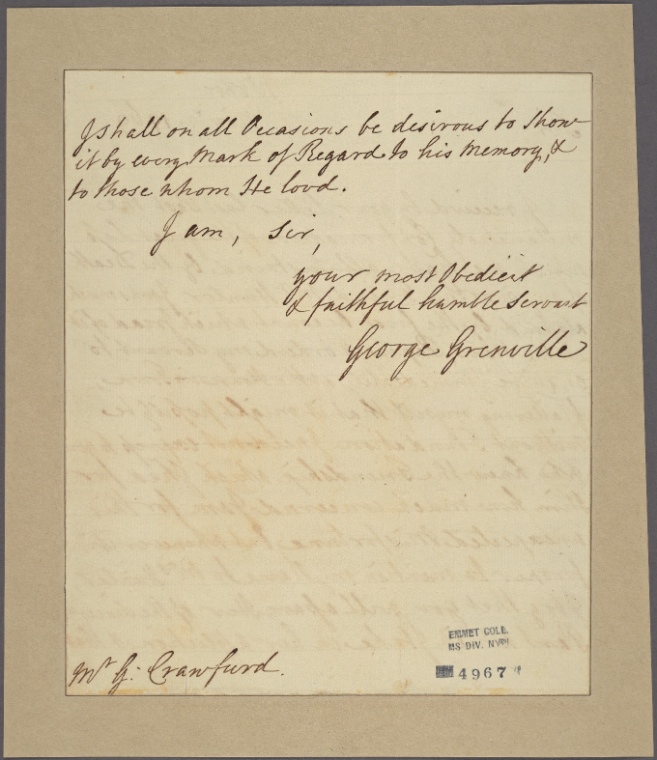 I shall on all Occasions be desirous to Show
it by every Mark of Regard to his Memory, &
to those whom He lovd.
I am, Sir,
your most Obedient
& faithful humble Servant
George Grenville
EMMET COLL.
MS DIV. NYPL
4967
Mr G: Crawfurd.